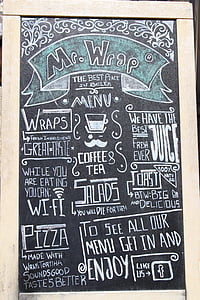 Mr. Wrap
THE BEST PLACE
MENU
WRAPS
GREAT TASTE
WHILE YOU
ARE EATING
YOU CAN
WI-FI
PIZZA
MADE WITH
SOUNDS GOOD
TASTES BETTER
COFFEE'S
TEA
SALADS
YOU WILL DIE FOR THEM
WE HAVE THE
BEST
FRESH
EVER
JUICE
TOAST
BTW-BIG
AND
DELICIOUS
TO SEE ALL OUR
MENU GET IN AND
ENJOY
LIKE
US